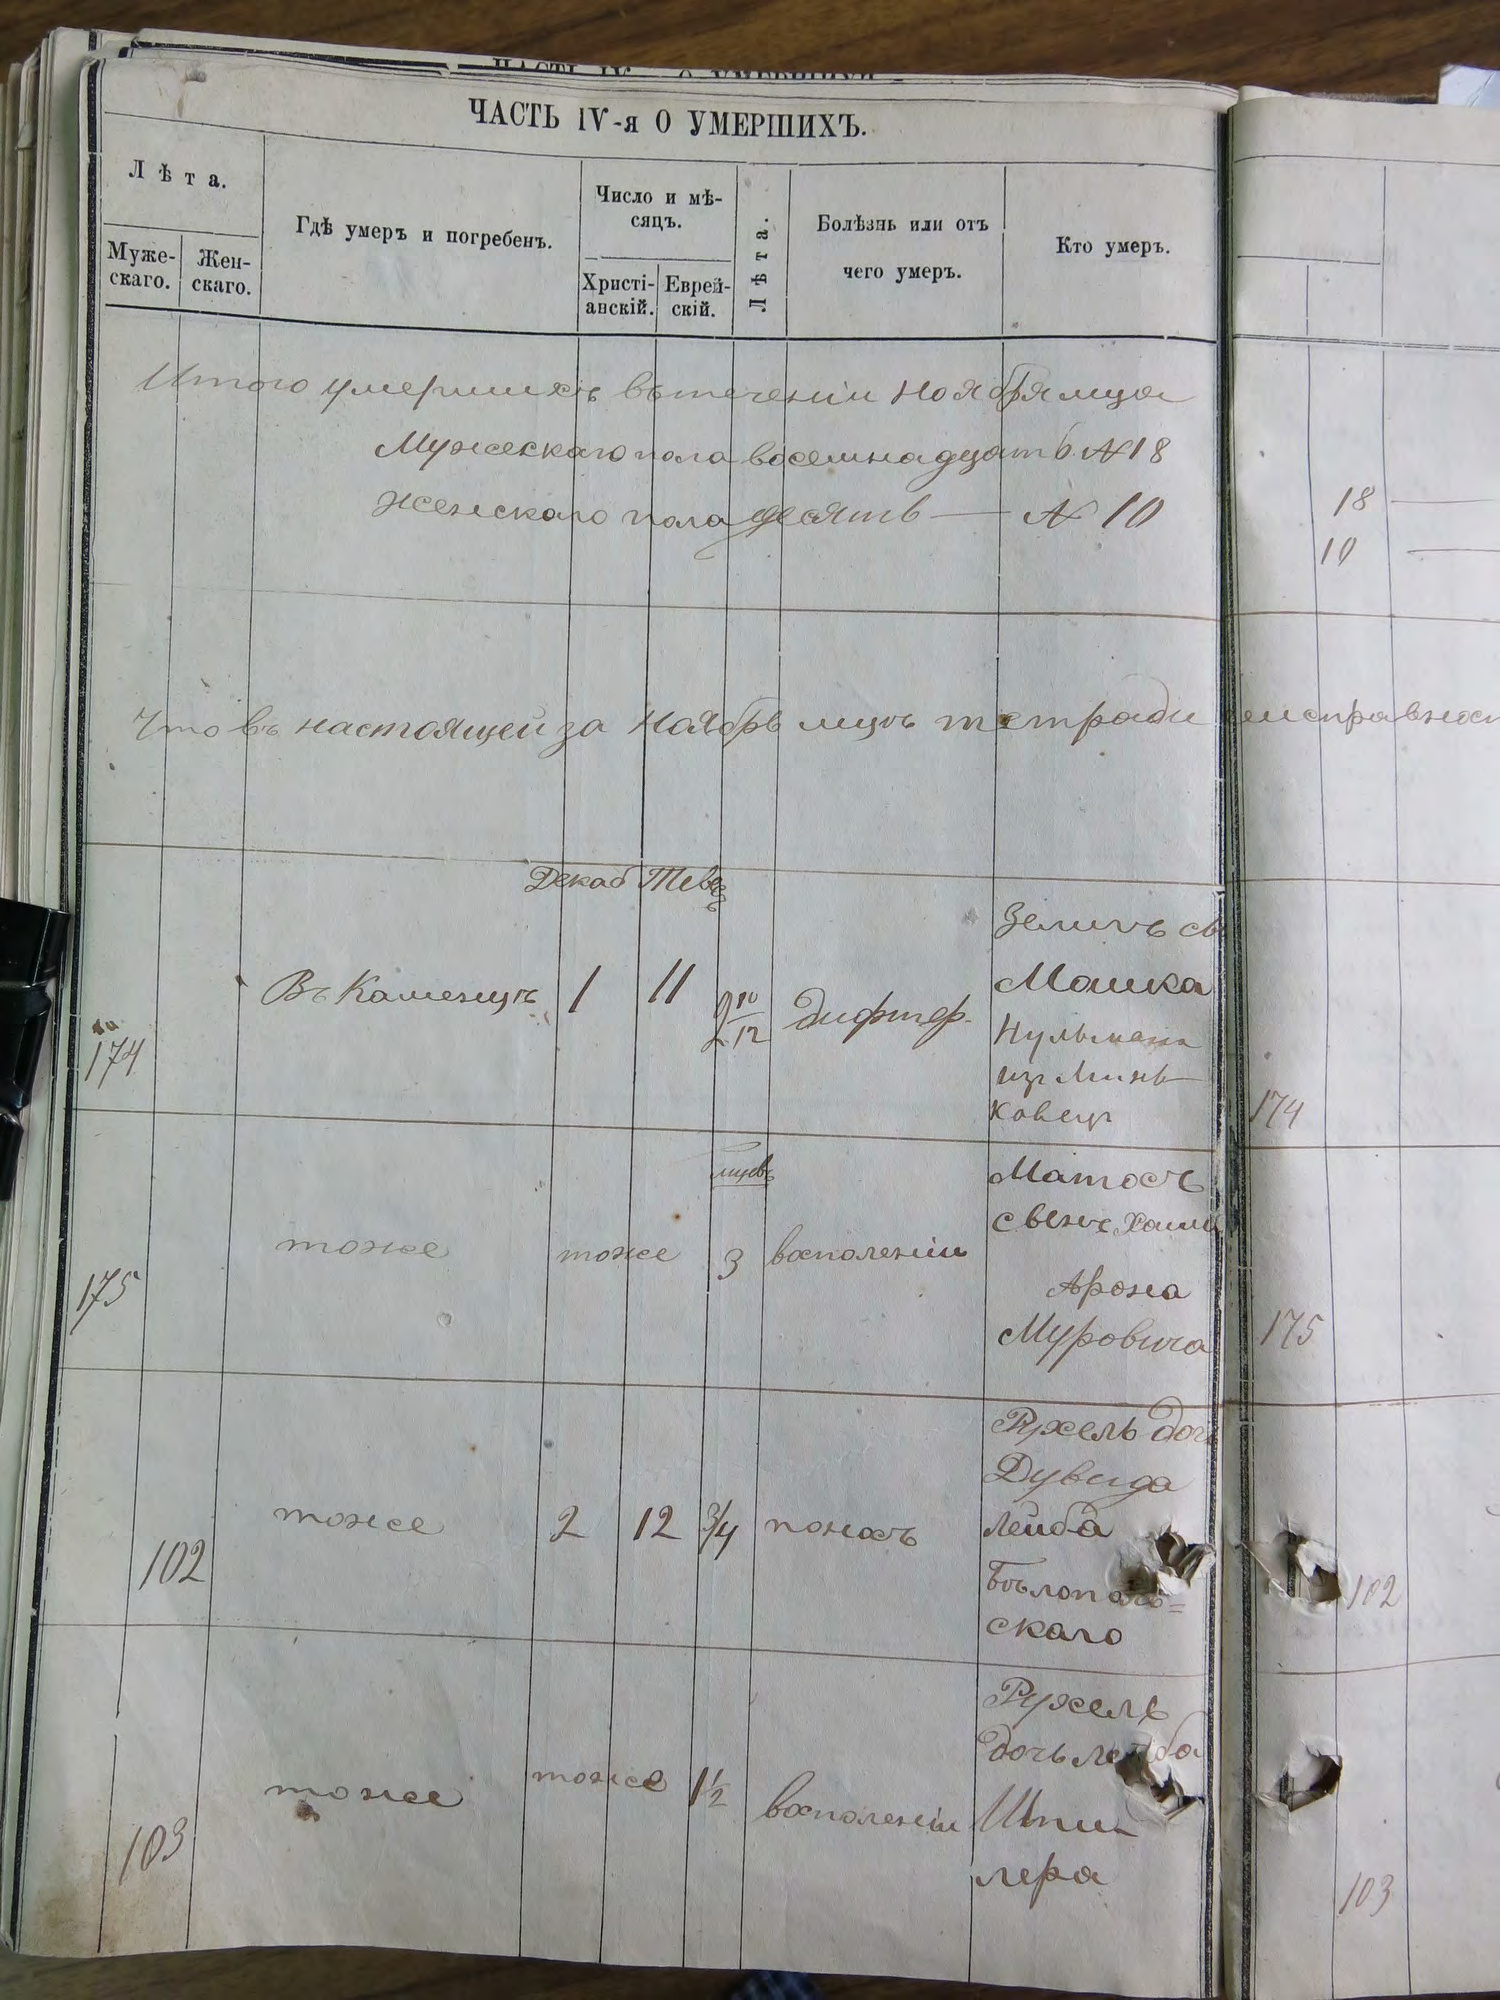 ЧАСТЬ IV-я О УМЕРШИХЪ.
Лѣта.
Муже-
скаго.
Жен-
скаго.
Гдѣ умеръ и погребенъ.
Число и мѣ-
сяцъ.
Христі-
анскій.
Еврей-
скій.
Лѣта.
Болѣзнь или отъ
чего умеръ.
Кто умеръ.
Итого умершихъ въ теченіи Ноября мца
Мужескаго пола восемнадцать № 18
Женскаго пола десять — № 10
18
10
Что въ настоящей за Ноябрь мцъ тетради
Декаб Тевес
174
Въ Каменцѣ 1 11 2 10/12 дифтер.
Зелигъ
Мошка
Нульмана
изъ Минь-
ковецъ
174
мцевъ
175
тоже тоже 3 восполеніи
Матосъ
сынъ Хаим
Арона
Муровича
175
102
тоже 2 12 3/4 поносъ
Рухель доч
Дувида
Лейба
Бѣлополь=
скаго
102
103
тоже тоже 1 1/2 восполеніи
Рухель
дочь Лейба
Шпи-
лера
103